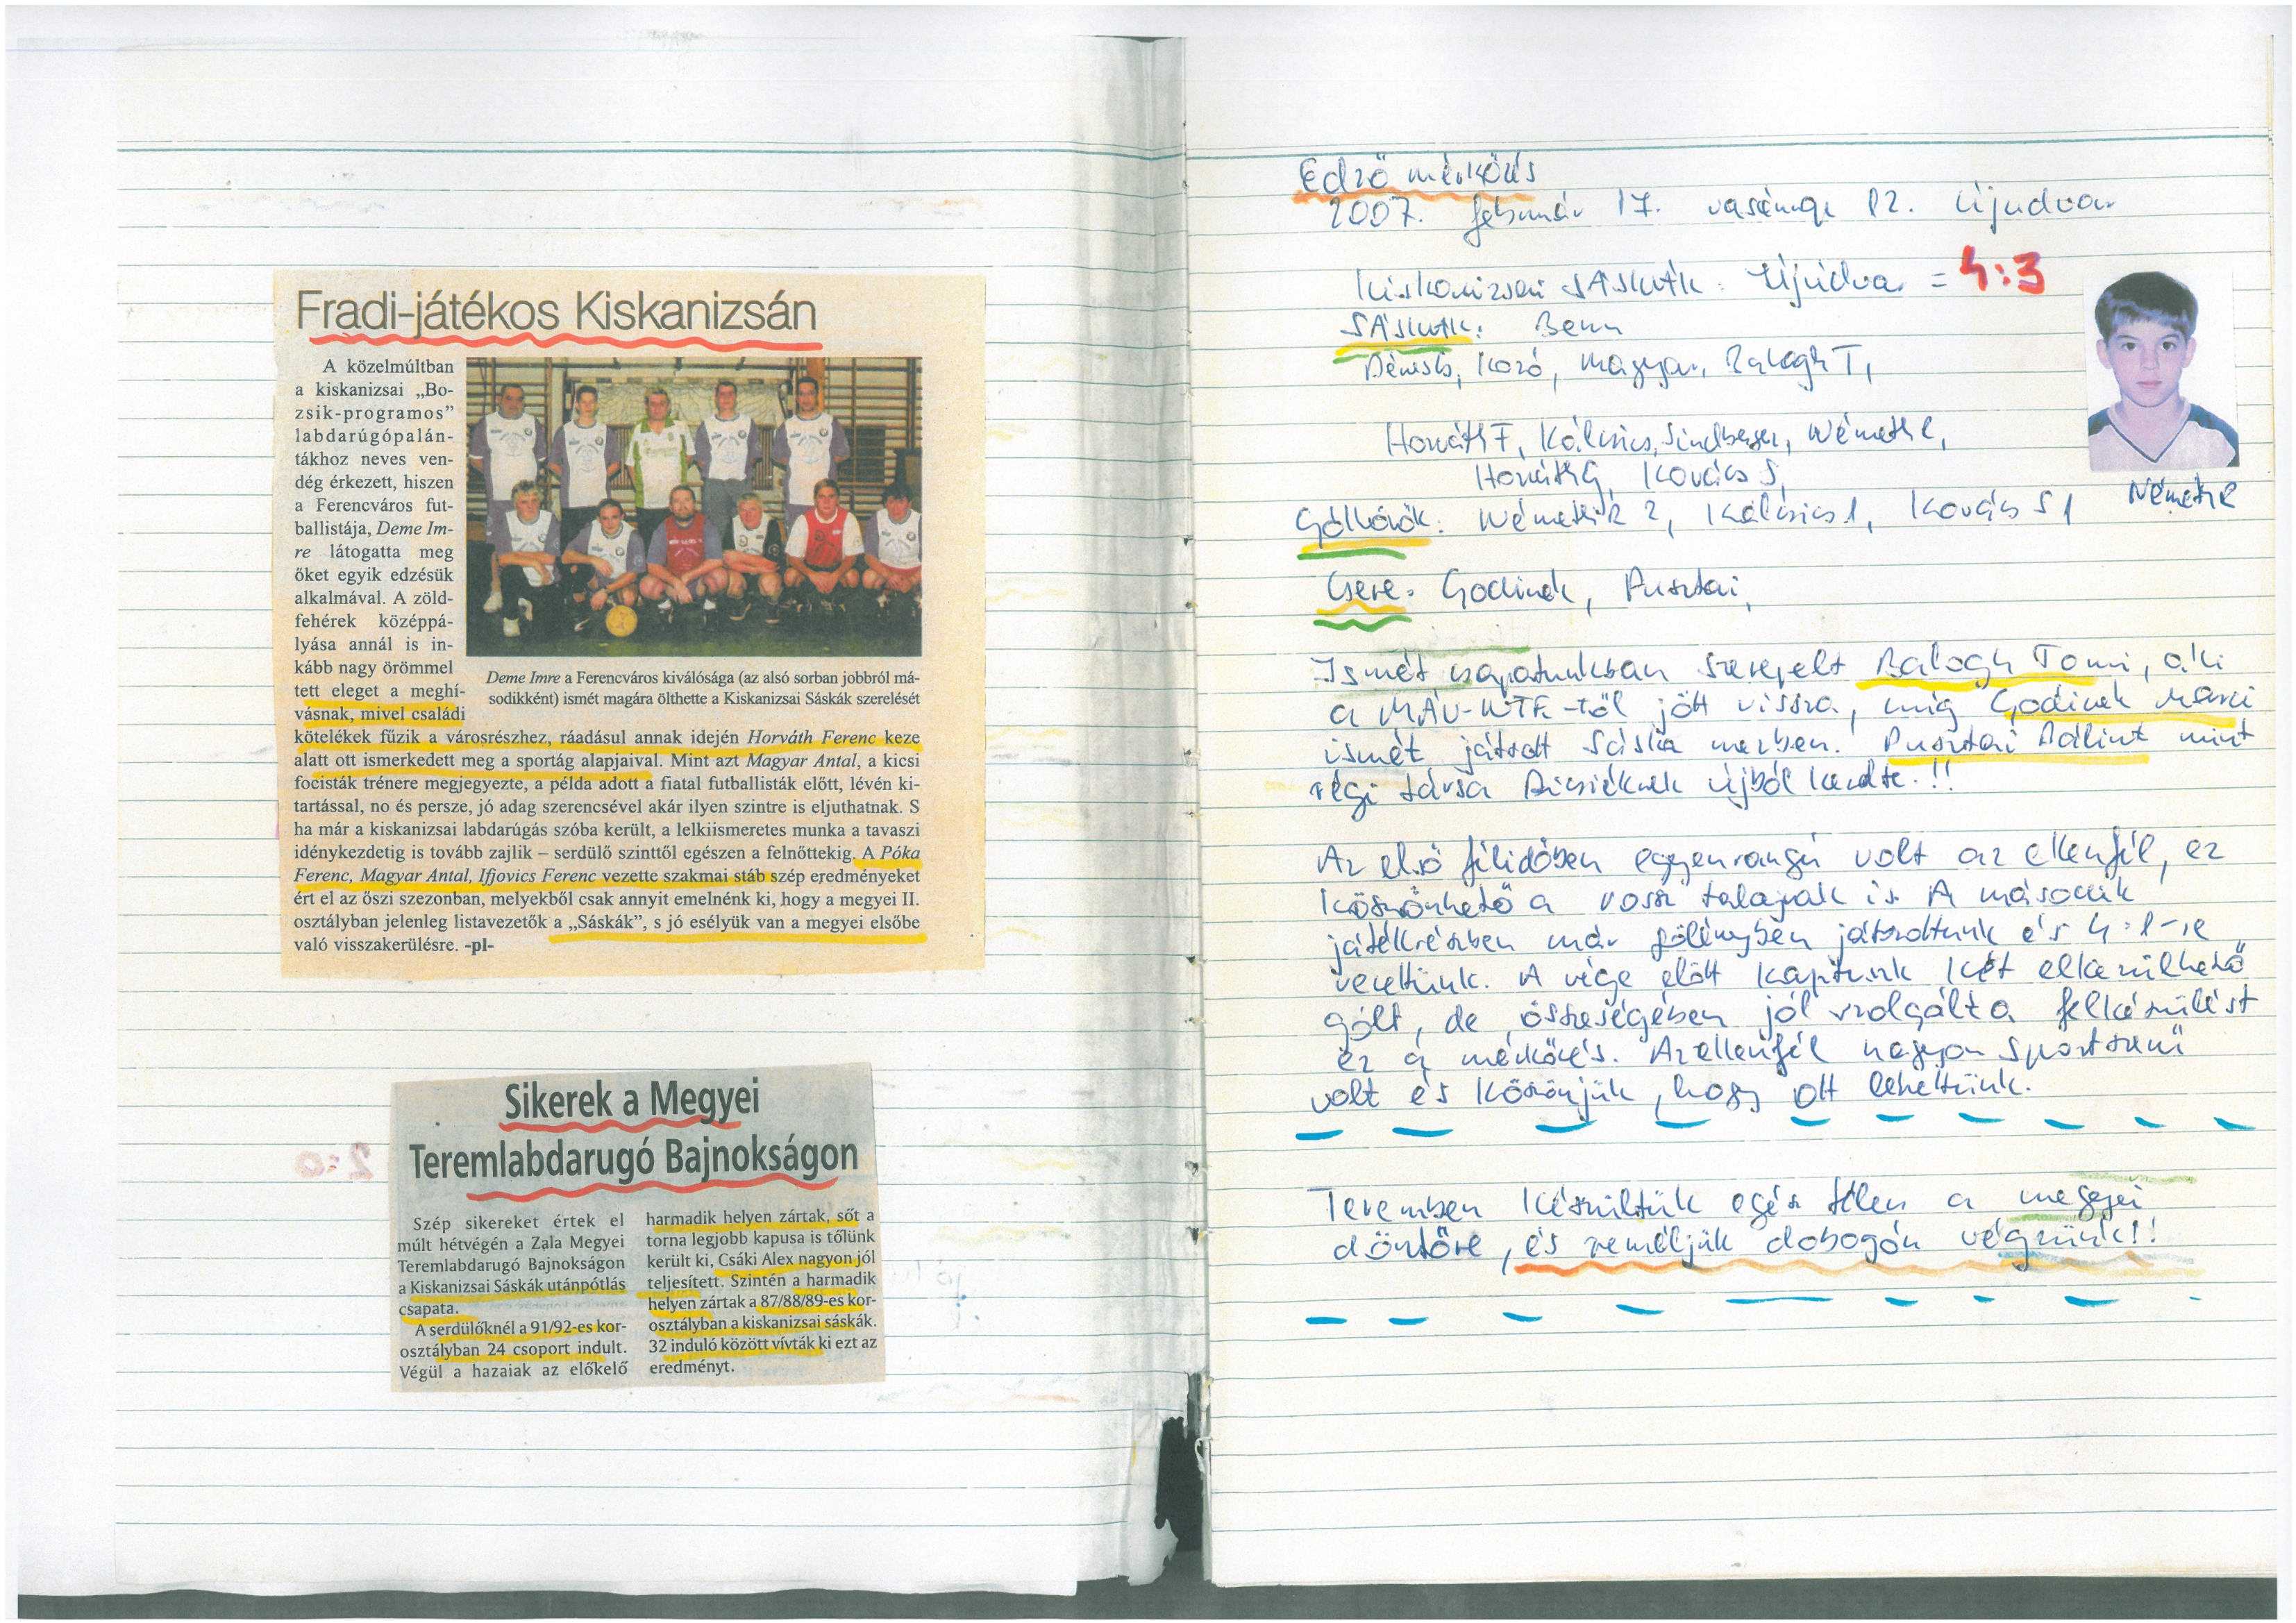 Fradi-játékos Kiskanizsán
A közelmúltban
a kiskanizsai „Bo-
zsik-programos”
labdarúgópalán-
tákhoz neves ven-
dég érkezett, hiszen
a Ferencváros fut-
ballistája, Deme Im-
re látogatta meg
őket egyik edzésük
alkalmával. A zöld-
fehérek középpá-
lyása annál is in-
kább nagy örömmel
tett eleget a meghí-
vásnak, mivel családi
kötelékek fűzik a városrészhez, ráadásul annak idején Horváth Ferenc keze
alatt ott ismerkedett meg a sportág alapjaival. Mint azt Magyar Antal, a kicsi
focisták trénere megjegyezte, a példa adott a fiatal futballisták előtt, lévén ki-
tartással, no és persze, jó adag szerencsével akár ilyen szintre is eljuthatnak. S
ha már a kiskanizsai labdarúgás szóba került, a lelkiismeretes munka a tavaszi
idénykezdetig is tovább zajlik – serdülő szinttől egészen a felnőttekig. A Póka
Ferenc, Magyar Antal, Ifjovics Ferenc vezette szakmai stáb szép eredményeket
ért el az őszi szezonban, melyekből csak annyit emelnénk ki, hogy a megyei II.
osztályban jelenleg listavezetők a „Sáskák”, s jó esélyük van a megyei elsőbe
való visszakerülésre. -pl-
Deme Imre a Ferencváros kiválósága (az alsó sorban jobbról má-
sodikként) ismét magára ölthette a Kiskanizsai Sáskák szerelését
Sikerek a Megyei
Teremlabdarugó Bajnokságon
Szép sikereket értek el
múlt hétvégén a Zala Megyei
Teremlabdarugó Bajnokságon
a Kiskanizsai Sáskák utánpótlás
csapata.
A serdülőknél a 91/92-es kor-
osztályban 24 csoport indult.
Végül a hazaiak az előkelő
harmadik helyen zártak, sőt a
torna legjobb kapusa is tőlünk
került ki, Csáki Alex nagyon jól
teljesített. Szintén a harmadik
helyen zártak a 87/88/89-es kor-
osztályban a kiskanizsai sáskák.
32 induló között vívták ki ezt az
eredményt.
Edző mérkőzés
2007. február 17. vasárnap 12. Újudvar
Kiskanizsai SÁSKÁK : Újudvar = 4:3
SÁSKÁK: Benn
Koző, Magyar, Balogh T,
Horváth F, Kálcsics, Sindberger, Németh R,
Horváth G, Kovács S,
Góllövők: Németh R 2, Kálcsics 1, Kovács S 1
Németh R
Csere: Godinek, Pusztai,
Ismét csapatunkban szerepelt Balogh Tomi, aki
a MÁV-NTE-től jött vissza, míg Godinek Marci
ismét játszott Sáska mezben. Pusztai Bálint mint
régi társa újból kezdte.!!
Az első félidőben egyenrangú volt az ellenfél, ez
köszönhető a rossz talajnak is. A második
játékrészben már fölényben játszottunk és 4:1-re
vezettünk. A vége előtt kaptunk két elkerülhető
gólt, de összeségében jól szolgálta felkészülést
ez a mérkőzés. Az ellenfél nagyon sportszerű
volt és köszönjük, hogy ott lehettünk.
Teremben készültük egész télen a megyei
döntőre, és reméljük dobogón végzünk!!